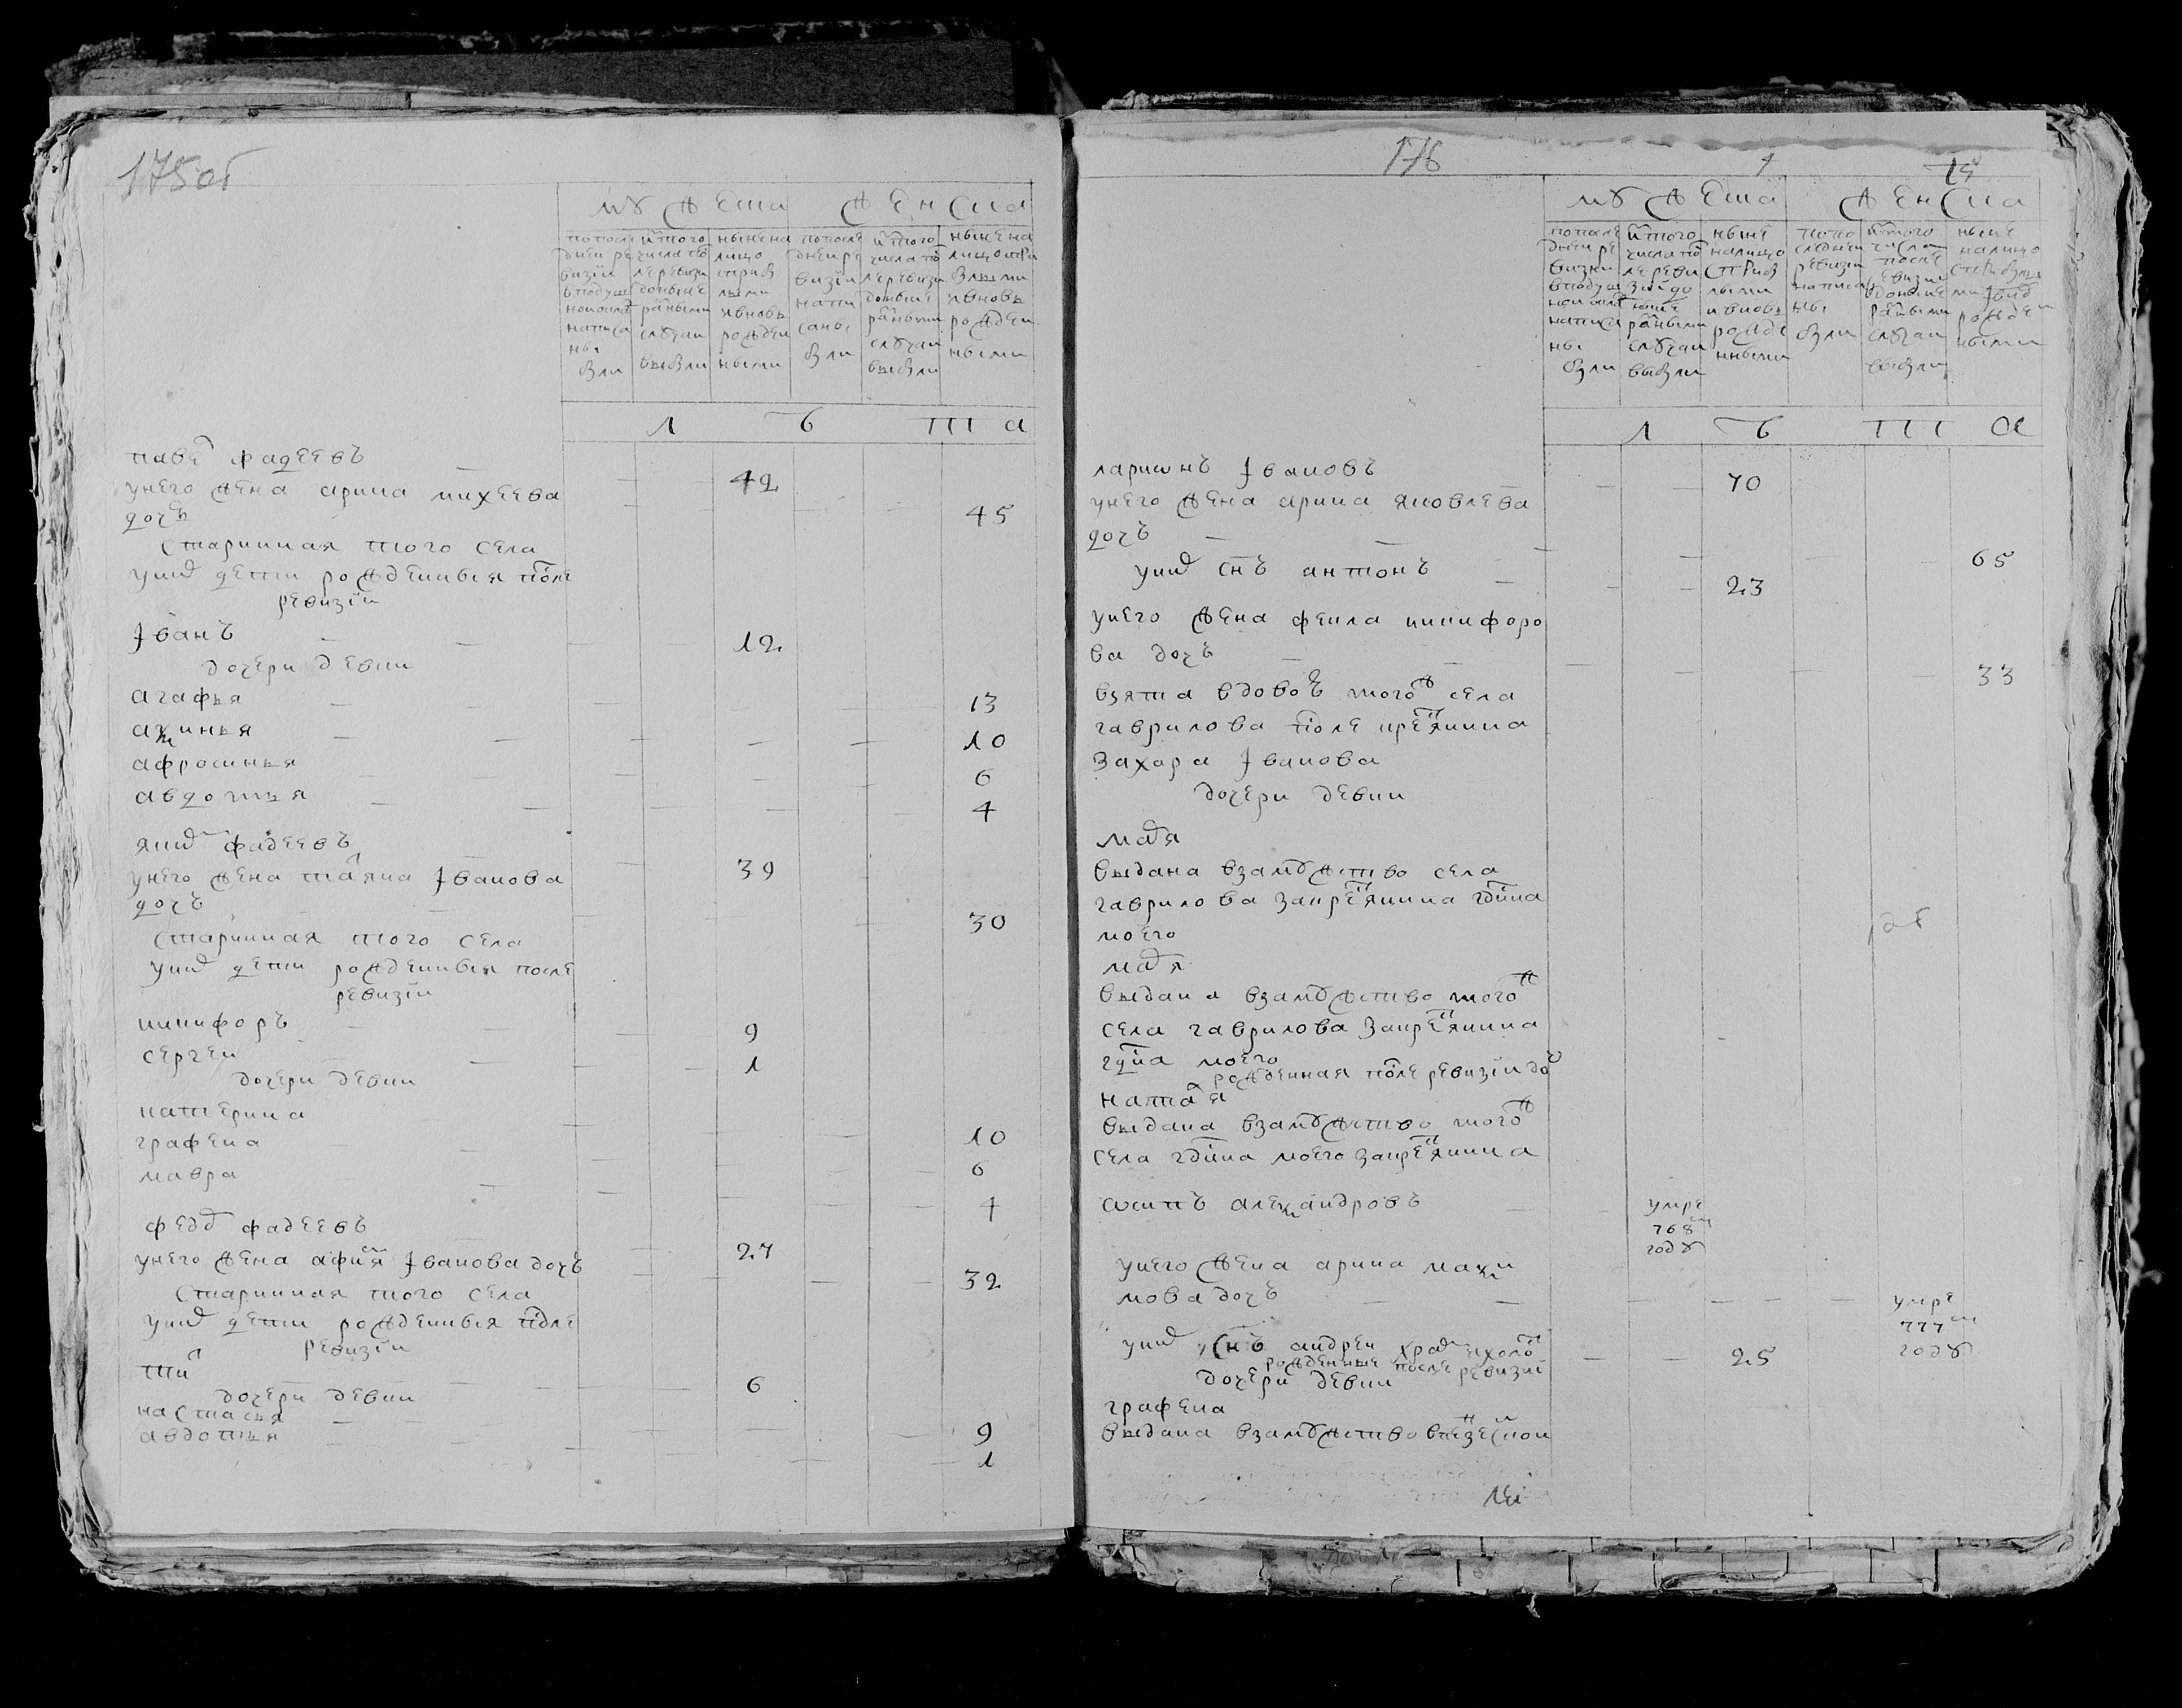 175об
мужеска женска
по после
дней ре
визiи
в подуш
ной оклад
написа
ны
были
ис того
числа по
ле ревизи
до ныне
разными
случаи
выбыли
ныне на
лицо
с прибы
лыми
и вновь
рожден
ными
по после
дней ре
визiи
напи
саны
были
ис того
числа по
ле ревизи
до ныне
разными
случаи
выбыли
ныне на
лицо с при
былыми
и вновь
рожден
ными
л ѣ т а
павел фадеевъ 42
у него жена арина михеева
дочь 45
старинная того села
у них дети рожденныя после
ревизiи
Iванъ 12
дочери девки
агафья 13
аксинья 10
афросинья 6
авдотья 4
яков фадеевъ 39
у него жена татяна Iванова
дочь 30
старинная того села
у них дети рожденныя после
ревизiи
никифоръ 9
сергеи 1
дочери девки
катерина 10
графена 6
мавра 4
федор фадеевъ 27
у него жена афимя Iванова дочь 32
старинная того села
у них дети рожденныя после
ревизiи
тит 6
дочери девки
настасья 9
авдотья 1
176
мужеска женска
по после
дней ре
визии
в подуш
ной оклад
написа
ны
были
ис того
числа по
ле реви
зии до
ныне
разными
случаи
выбыли
ныне
на лицо
с прибы
лыми
и вновь
рожде
нными
по по
следней
ревизи
написа
ны
были
ис того
числа
после
ревизи
до ныне
разными
случаи
выбыли
ныне
на лицо
с прибылы
ми и вно
рожден
ными
л ѣ т а
ларионъ Iвановъ 70
у него жена арина яковлева
дочь 65
у них снъ антонъ 23
у него жена фекла никифоро
ва дочь 33
взята вдовою того ж села
гаврилова после крестянина
захара Iванова
дочери девки
маря
выдана в замужство села
гаврилова за крестянина гдина
моего
маря
выдана в замужство того ж
села гаврилова за крестянина
гдина моего
рожденная после ревизiи до
наталя
выдана в замужство того ж
села гдина моего за крестянина
осипъ александровъ умре
768
году
у него жена арина макси
мова дочь умре
777
году
у них снъ андреи холост 25
рожденные после ревизiи
дочери девки
графена
выдана в замужство